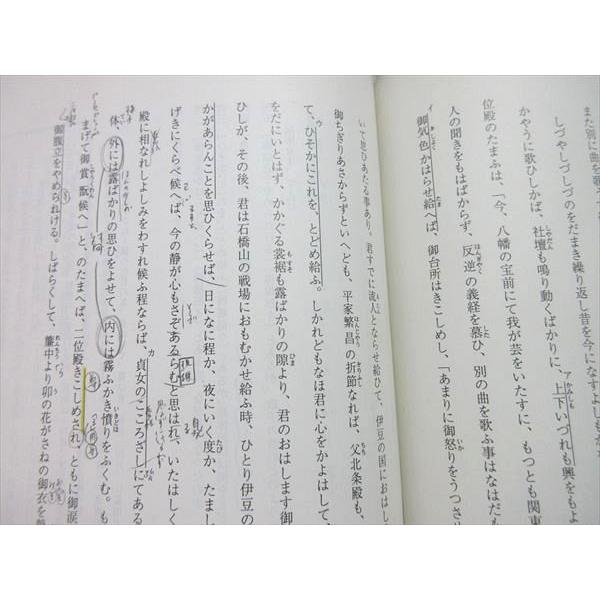 また別に曲を
しづやしづしづのをだまき繰り返し昔を今になすよしも
かやうに歌ひしかば、社壇も鳴り動くばかりに、上下いづれも興をもよ
位殿のたまふは「今、八幡の宝前にて我が芸をいたすに、もつとも関東
人の聞きをもはばからず、反逆の義経を慕ひ、別の曲を歌ふ事はなはだも
御気色かはらせ給へば、御台所はきこしめし、「あまりに御怒りをうつさせ
いて思ひあたる事あり。君すでに流人とならせ給ひて、伊豆の国におはし
御ちぎりあさからずといへども、平家繁昌の折節なれば、父北条殿も、
て、ひそかにこれを、とどめ給ふ。しかれどもなほ君に心をかよはして、
をだにいとはず、かかぐる裳裾も露ばかりの隙より、君のおはします御
ひしが、その後、君は石橋山の戦場におもむかせ給ふ時、ひとり伊豆の
かがあらんことを思ひくらせば、日になに程か、夜にいく度か、たまし
げきにくらべ候へば、今の静が心もさぞあるらむと思はれ、いたはしく
殿に相なれしよしみをわすれ候ふ程ならば、貞女のこころざしにてある
体、外には露ばかりの思ひをよせて、内には霧ふかき憤りをふくむ。も
まげて御賞翫候へ」と、のたまへば、二位殿きこしめされ、ともに御涙
御腹立をやめられける。しばらくして、簾中より卯の花がさねの御衣を